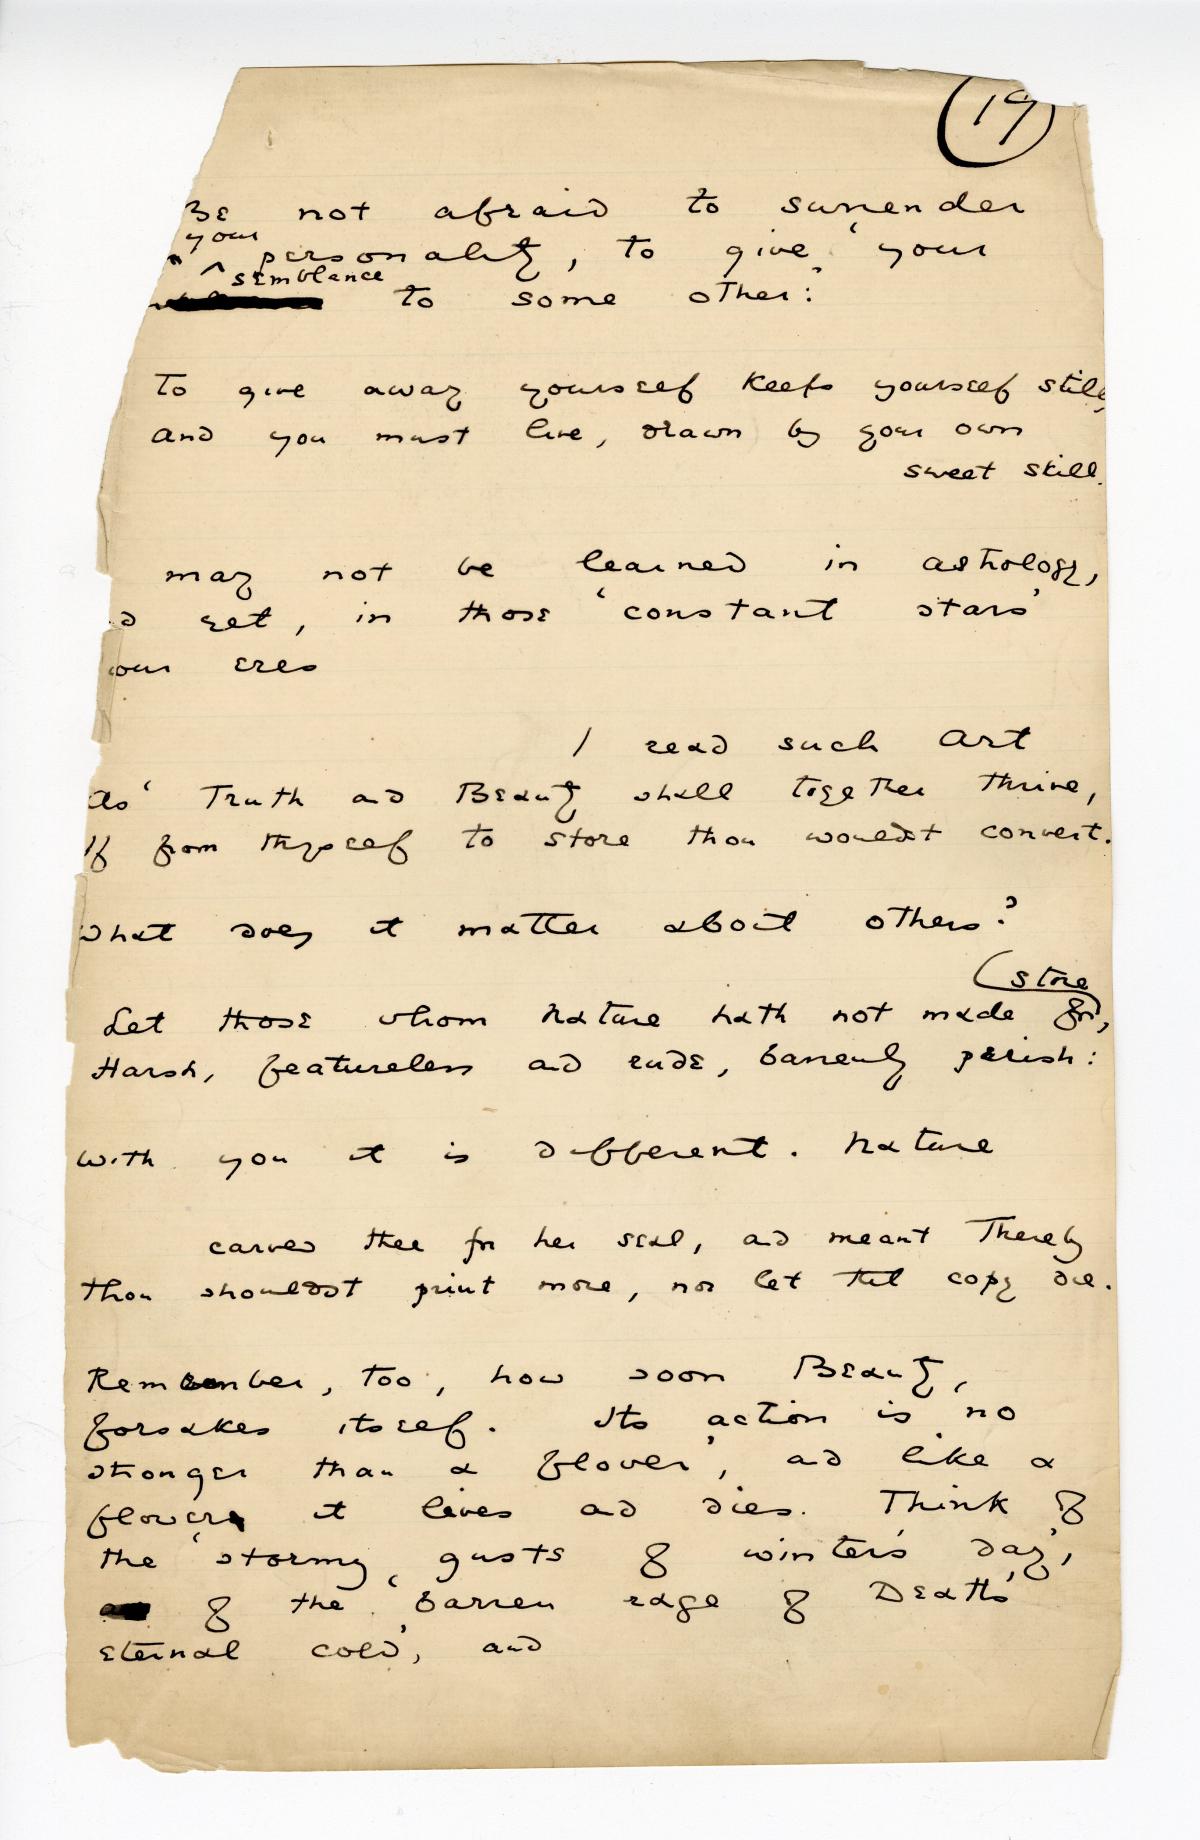 19
Be not afraid to surrender
your
personality, to give 'your
semblance
to some other:'
To give away yourself keeps yourself still,
And you must live, drawn by your own
sweet skill.
may not be learned in astrology,
yet, in those 'constant stars'
our eyes
I read such Art
As 'Truth and Beauty shall together thrive,
If from thyself to store thou wouldst convert.
What does it matter about others?
(store
Let those whom Nature hath not made for,
Harsh, featureless and rude, barrenly perish:
With you it is different. Nature
carved thee for her seal, and meant Thereby
Thou shouldst print more, nor let that copy die.
Remember, too, how soon Beauty,
forsakes itself. Its action is 'no
stronger than a flower', and like a
flower it lives and dies. Think of
the 'stormy gusts of winter's day',
of the 'barren edge of Death's
eternal cold', and